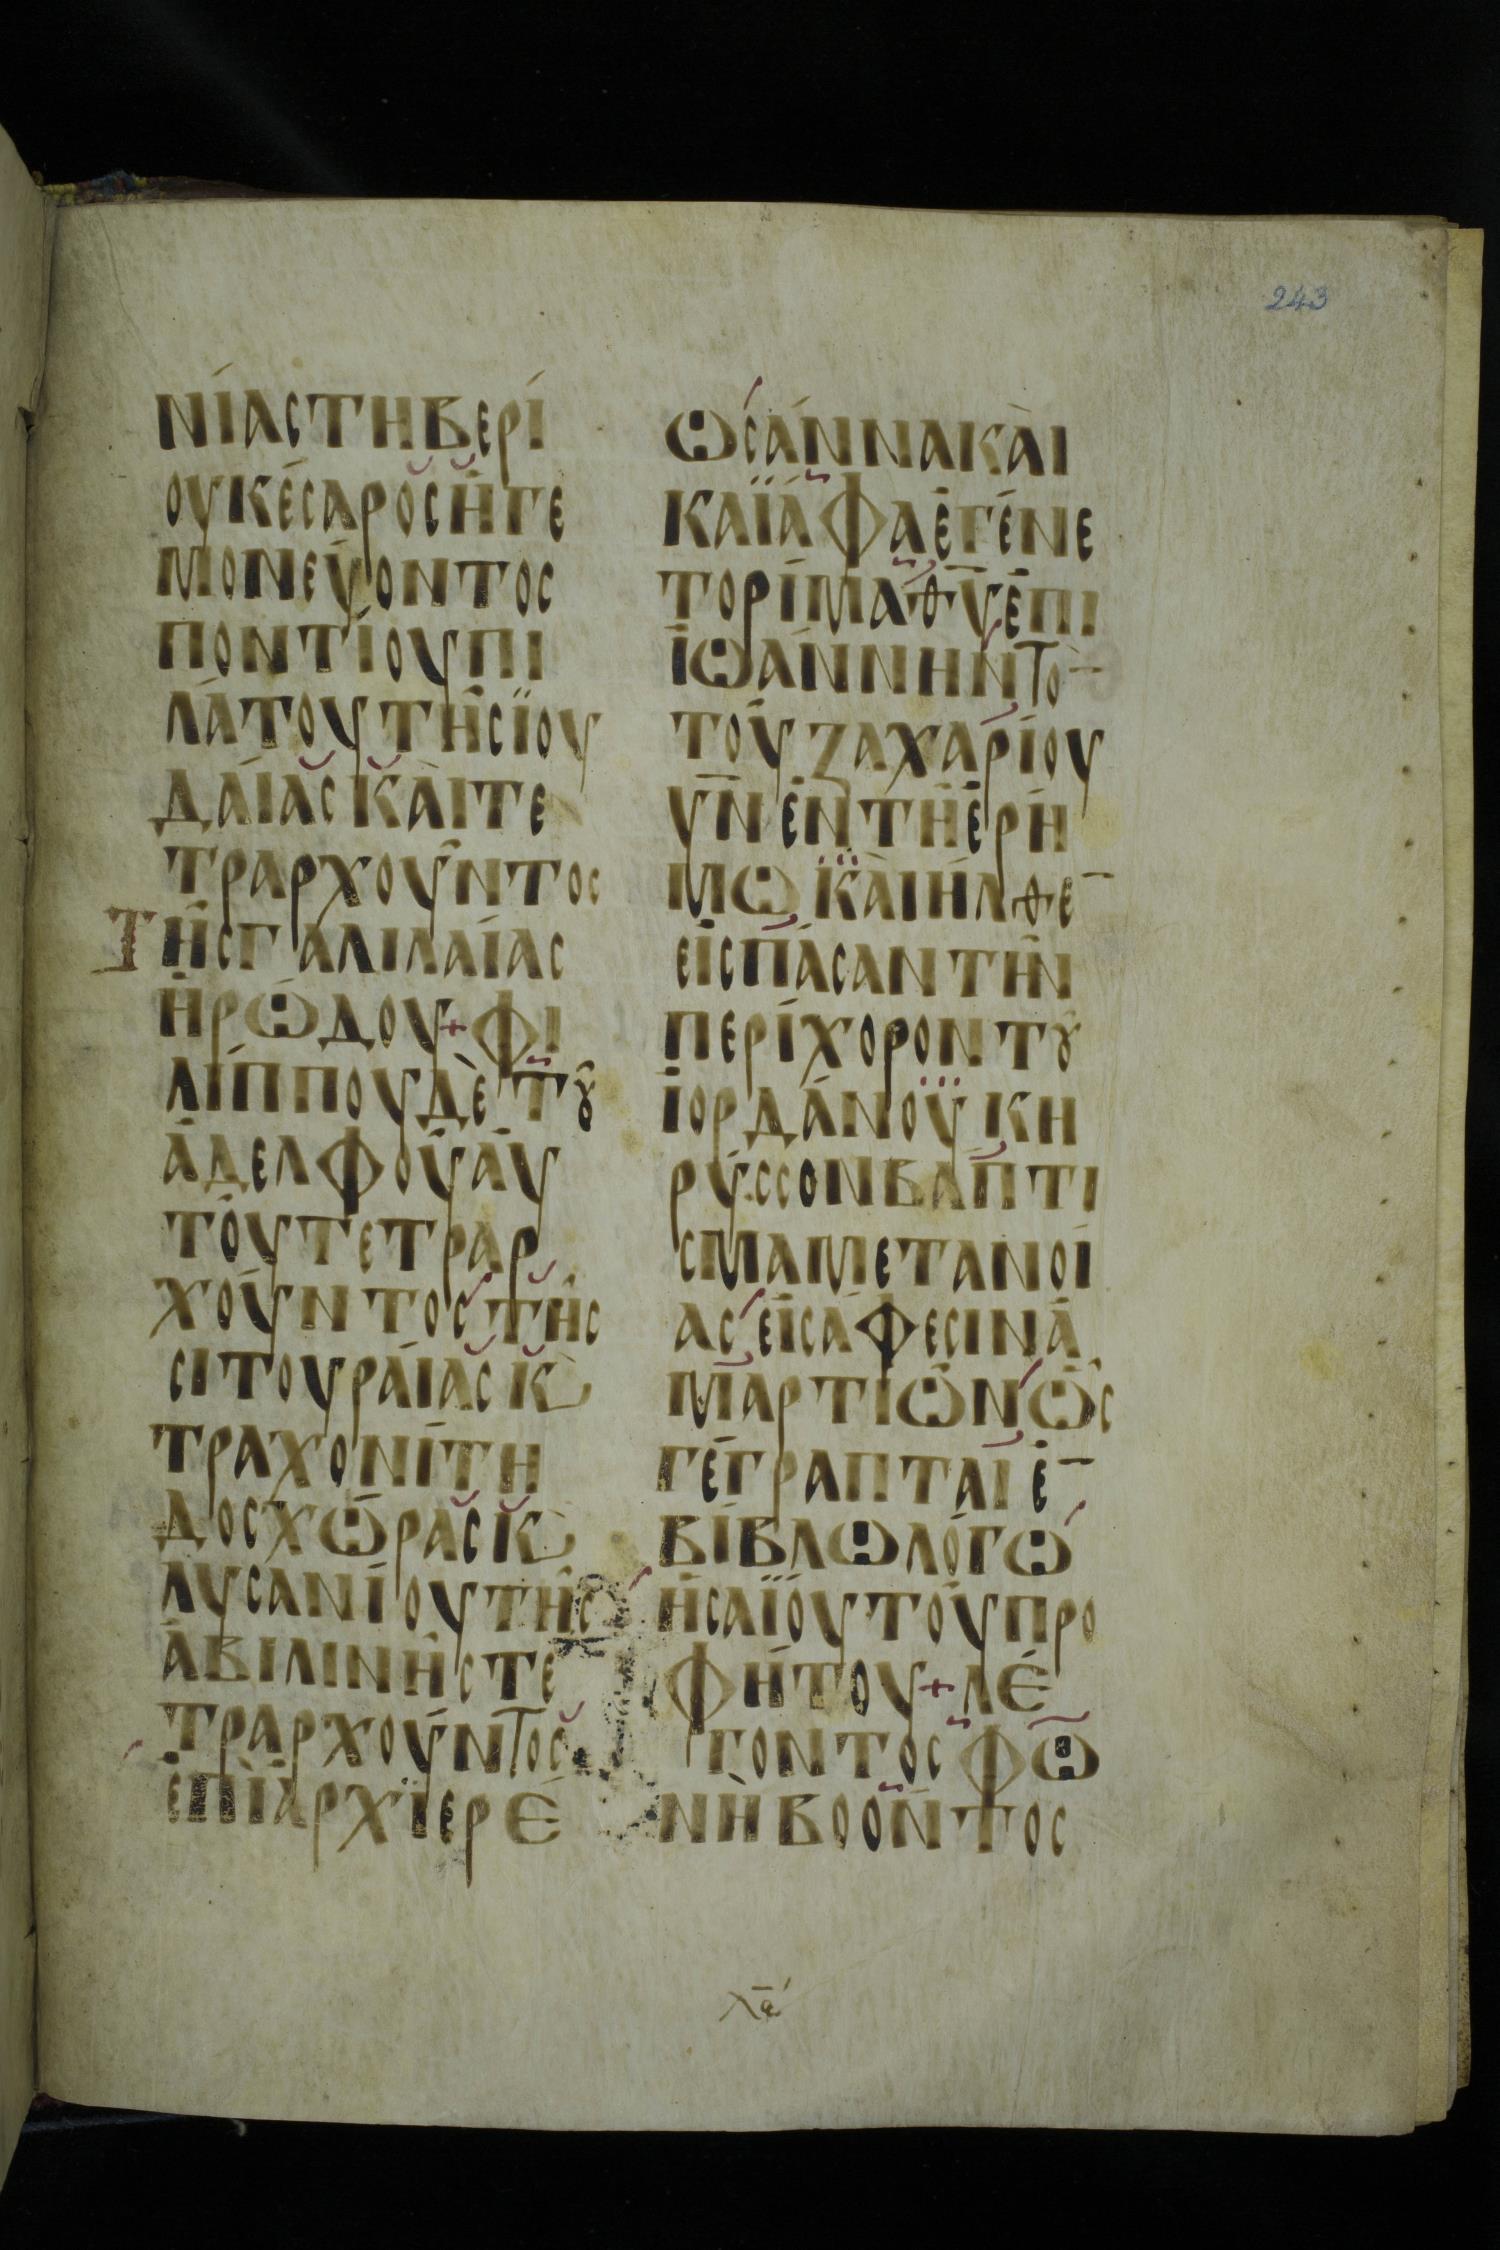 243
ΝΊΑϹΤΗΒΕΡΊ
ΟΥΚΈϹΑΡΟϹἩΓΕ
ΜΟΝΕΎΟΝΤΟϹ
ΠΟΝΤΊΟΥΠΙ
ΛΆΤΟΥΤΗ͂ϹΪΟΥ
ΔΆΙΑϹΚᾺΙΤΕ
ΤΡΑΡΧΟΥ͂ΝΤΟϹ
ΤΗ͂ϹΓΑΛΙΛΑΊΑϹ
ἩΡΏΔΟΥ+ΦΙ
ΛΊΠΠΟΥΔῈΤȢ͂
ἈΔΕΛΦΟΥ͂ΑΥ̓
ΤΟΎΤΕΤΡΑΡ
ΧΟΎΝΤΟϹΤΗ͂Ϲ
ϹΙΤΟΥΡΆΙΑϹΚ
ΤΡΑΧΟΝΊΤΗ
ΔΟϹΧΏΡΑϹΚ
ΛΥϹΑΝΊΟΥΤΗ͂Ϲ
ἈΒΙΛΙΝΗ͂ϹΤΕ
ΤΡΑΡΧΟΎΝΤΟϹ
ἘΠῚἈΡΧΙΕΡΈ
ΩϹἌΝΝΑΚᾺΙ
ΚΑΪΆΦΑἘΓΈΝΕ
ΤΟΡΊΜΑΘΥ̅ἘΠΙ
ἸΩΆΝΝΗΝΤΟ̅
ΤΟΎΖΑΧΑΡΊΟΥ
ΥΝ̅ἘΝΤΗ͂ἘΡΉ
ΜΩΚᾺΙΗ͂ΛΘΕ̅
ΕἸϹΠΆϹΑΝΤΗ͂Ν
ΠΕΡΊΧΟΡΟΝΤȢ͂
ἸΟΡΔΆΝΟΥΚΗ
ΡΎϹϹΟΝΒΆΠΤΙ
ϹΜΑΜΕΤΑΝΟΊ
ΑϹΕἸϹΆΦΕϹΙΝἉ
ΜΑΡΤΙΩ͂ΝΩ͂Ϲ
ΓΈΓΡΑΠΤΑΙἘ̅
ΒΊΒΛΩΛΌΓΩ
ἩϹΑΪ́ΟΥΤΟΎΠΡΟ
ΦΉΤΟΥ+ΛΈ
ΓΟΝΤΟϹΦΩ
ΝῊΒΟΟΝΤΟϹ
χα̅ʹ